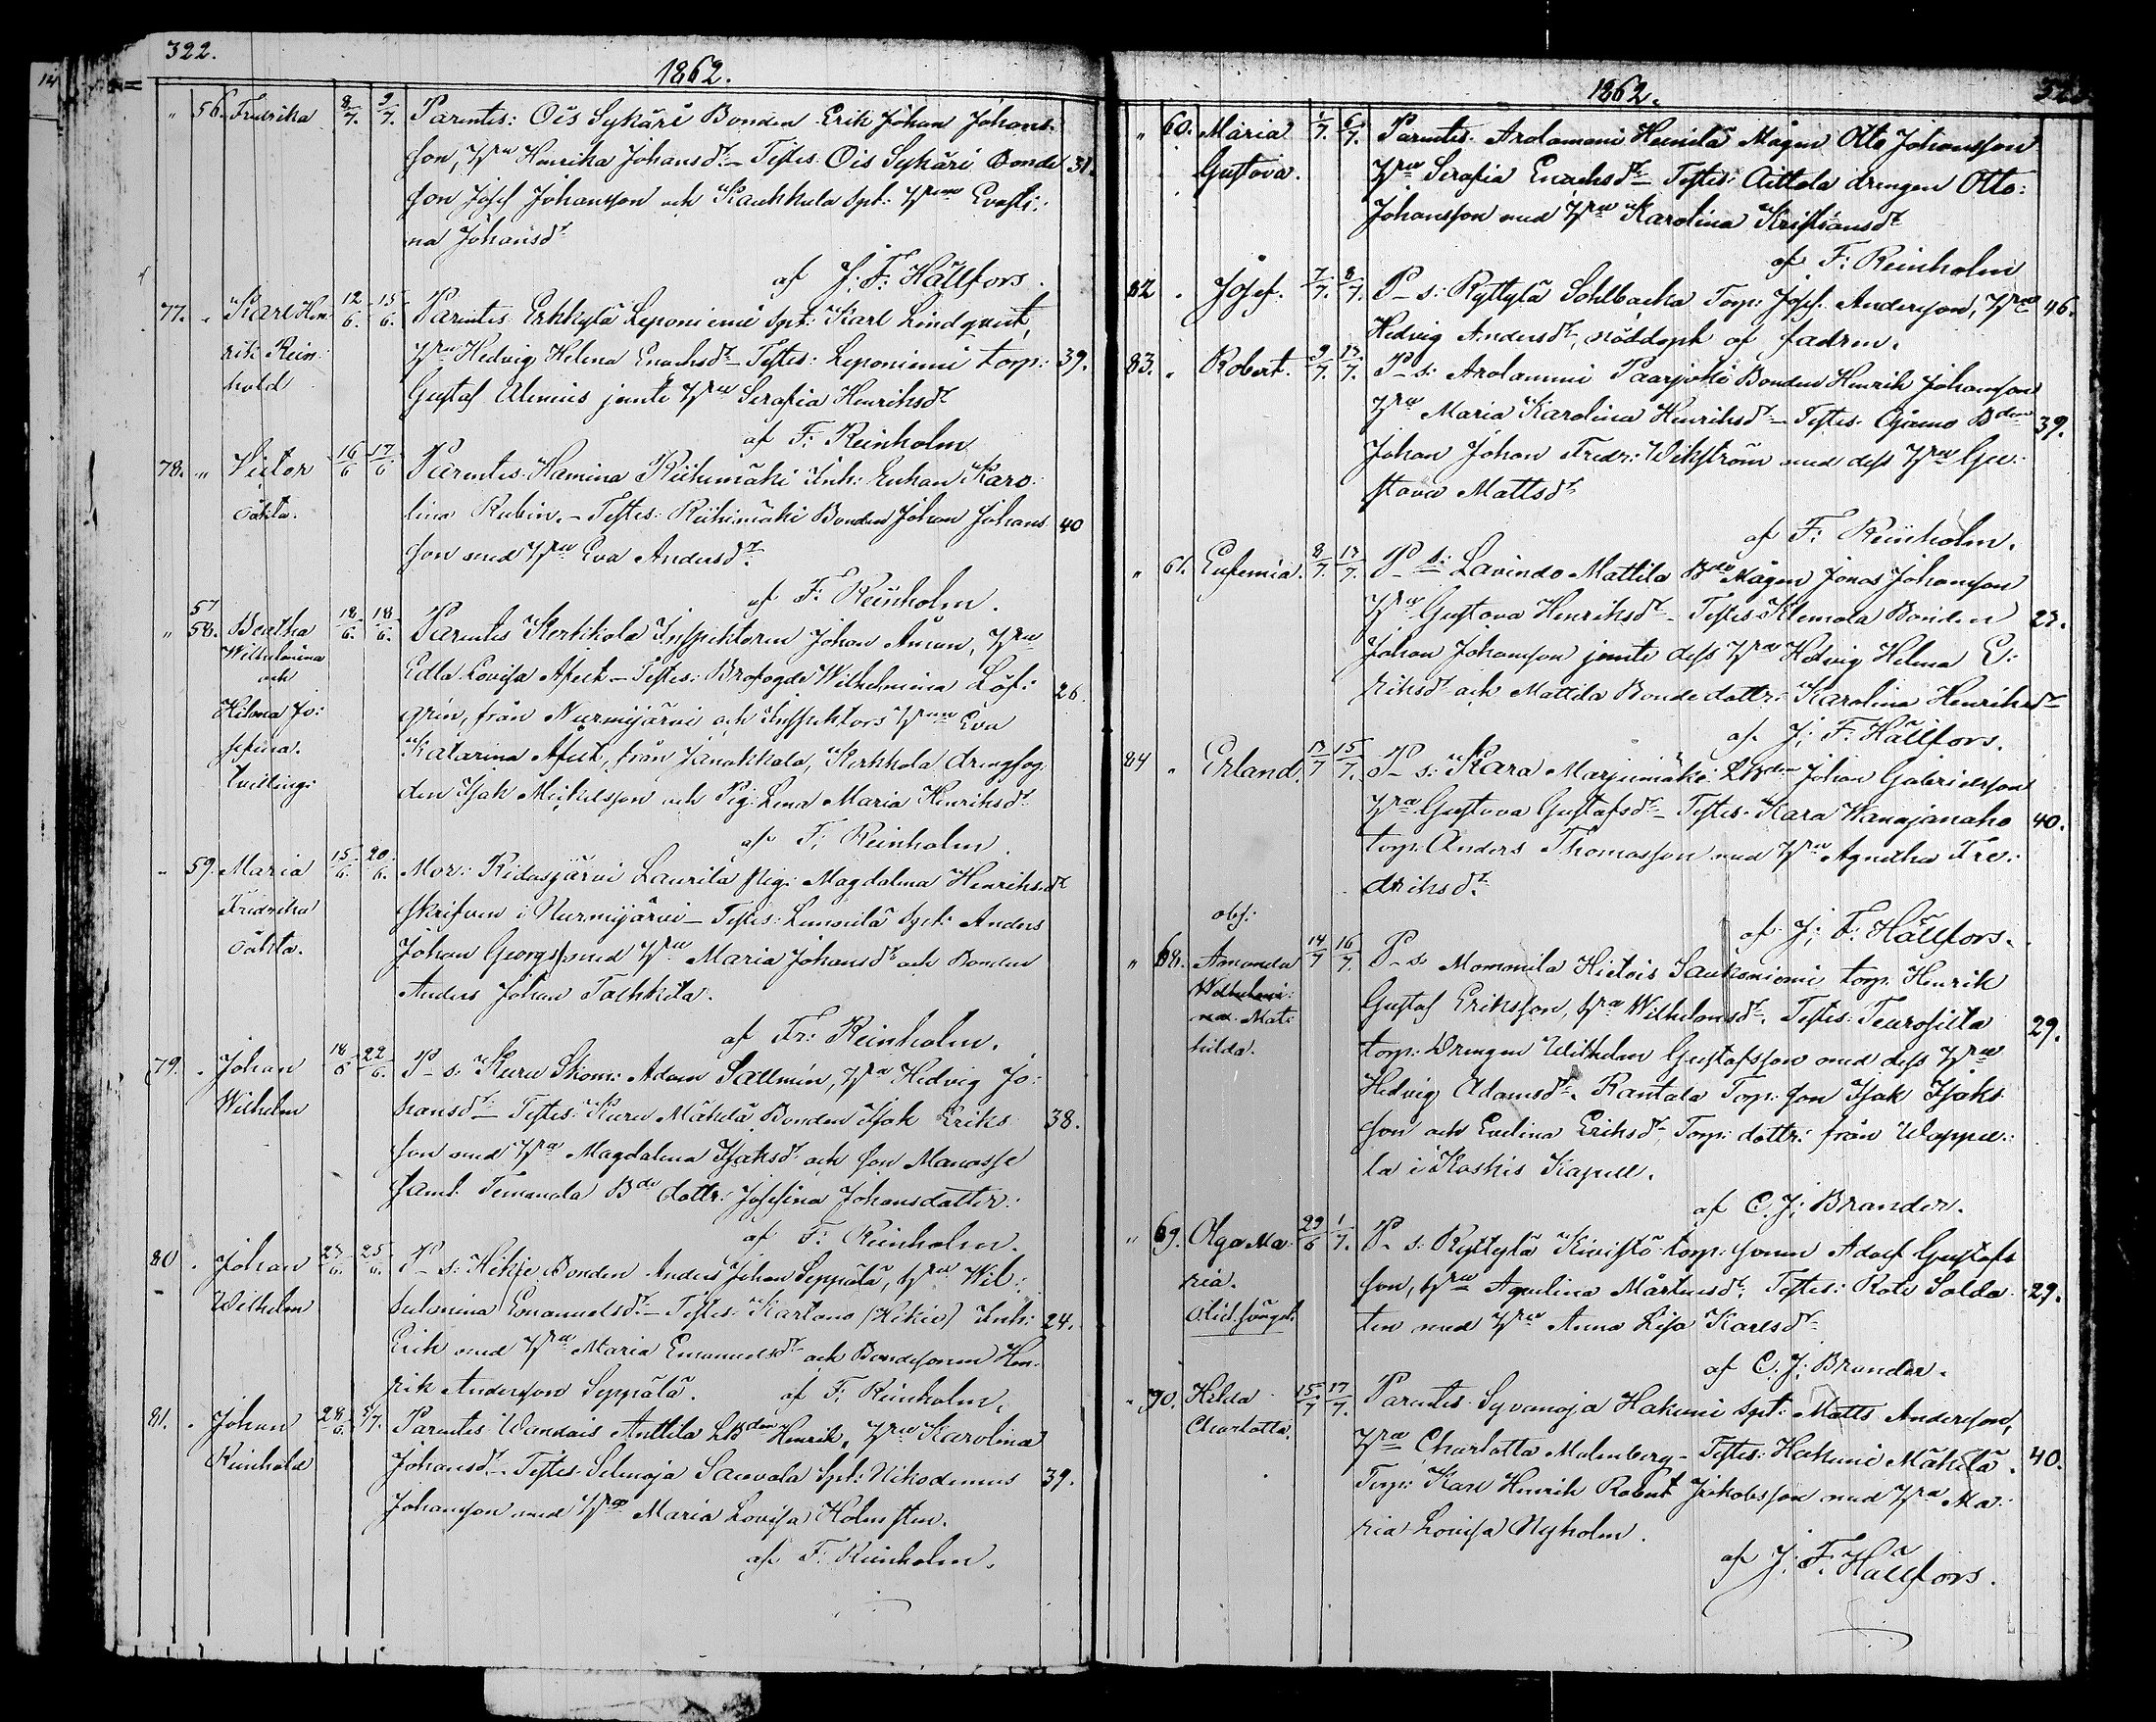 322.
1862.
" 56. Fredrika 8/7. 9/7. Parentes: Ois Sykäri Bonden Erik Johan Johans-
son, Hru Henrika Johansdr – Testes: Ois Sykäri Bonde 31.
son Josef Johansson och Kaukkala spt: Hrun Evasti:
na Johansdr
af J: F: Hällfors.
77. " Karl Hen 12/6. 15/6. Parentes: Erkkylä Leponiemi spt: Karl Lindqvist,
rik Rein: Hru Hedvig Helena Enochsdr – Testes: Leponiemi torp: 39.
hold Gustaf Alenius jemte Hru Serafia Henriksdr
af F: Reinholm
78. " Victor 16/6 17/6 Parentes: Hamina Riihimäki Inh: Enkan Karo-
oäkta. lina Rubin. – Testes: Riihimäki Bonden Johan Johans 40
son med Hru Eva Andersdr.
af F: Reinholm.
57
" 58. Beatha 18/6. 18/6. Parentes Kertikola Inspektoren Johan Åman, Hru
Wilhelmina Edla Lovisa – Testes: Brofogde Wilhelmina Löf: 26.
och grén, från Nurmijärvi och Inspektors Hrun Eva
Hilma Jo: Katarina från Janakkala, Kerkkola drengfog
sefina. den Isak Mickelsson och Pig: Lena Maria Henriksdr
Tvilling:
af F: Reinholm.
" 59. Maria 15/6. 20/6. Mor: Ridasjärvi Laurila pig: Magdalena Henriksdr
Fredrika skrifven i Nurmijärvi – Testes: spt: Anders
oäkta. Johan Georgsson med Hru Maria Johansdr och Bonden
Anders Johan
af Fr: Reinholm.
79. " Johan 18/6 22/6. P – s. Kuru Skom: Adam Sallmén, Hru Hedvig Jo:
Wilhelm hansdr – Testes: Kuru Mäkelä Bonden Isak Eriks 38.
son med Hru Magdalena Isaksdr och son Manasse
samt Bde dottr: Josefina Johansdotter.
af F: Reinholm.
80 " Johan 23/6. 25/6. P – s: Hikje Bonden Anders Johan Seppälä, Hru Wil:
Wilhelm helmina Emanuelsdr – Testes: Kartano (Hikie) Inh: 24.
Erik med Hru Maria Emanuelsdr och Bondesonen Hen:
rik Andersson Seppälä. af F: Reinholm.
81. " Johan 28/6. 5/7. Parentes: Wandais Anttila LBden Henrik, Hru Karolina
Reinhold Johansdr – Testes: Selänoja Sauvala spt: Nikodemus 39.
Johansson med Hru Maria Lovisa Holmsten.
af F: Reinholm.
1862.
" 60. Maria 1/7. 6/7. Parentes: Arolammi Heinilä Mågen Otto Johansson
Gustava. Hru Serafia Enochsdr – Testes: Aittola drengen Otto
Johansson med Hru Karolina Kristiansdr
af F: Reinholm
82 " Josef. 7/7. 8/7. P – s: Ryttylä Sohlbacka Torp: Josef Andersson, Hrun 46.
Hedvig Andersdr, nöddöpt af fadren.
83. " Robert. 9/7. 13/7. P – s: Arolammi Paarjoki Bonden Henrik Johansson
Hru Maria Karolina Henriksdr – Testes: Bden 39.
Johan Johan Fredr: Wikström med dess Hru Gu:
stava Mattsdr
af F: Reinholm.
" 61. Eufemia. 8/7. 13/7. P – s: Lavindo Mattila Bde Mågen Jonas Johansson
Hru Gustava Henriksdr – Testes Klemola Bonden 23.
Johan Johansson jemte dess Hru Hedvig Helena E:
riksdr och Mattila Bonde dottr: Karolina Henriksdr
af J: F: Hällfors.
84 " Erland. 13/7 15/7. P – s: Kara Marjumäki LBden Johan Gabrielsson
Hru Gustava Gustafsdr – Testes: Kara Wanajanaho 40.
torp: Anders Thomasson med Hru Agnetha Fre:
driksdr.
af J: F: Hällfors.
obs:
" 68. Amanda 14/7 16/7. P – s. Mommila Hietois Sauksniemi torp: Henrik
Wilhelmi: Gustaf Eriksson, Hru Wilhelmsdr. Testes: Teurosilta 29.
na Mat: torp: Drengen Wilhelm Gustafsson med dess Hru
hilda. Hedvig Adamsdr. Rantala Torp: son Isak Isaks
son och Evelina Eriksdr Torp: dottr: från
la i Koskis Kapell.
af C. J: Brander.
" 69. Olga Ma: 29/6 1/7. P – s: Ryttylä Kivistö torp: sonen Adolf Gustafs
ria. son, Hru Aqvilina Mårtensdr. Testes: Rote Solda- 29.
ten med Hru Anna Lisa Karlsdr
af C. J: Brander.
" 70. Hilda 15/7 17/7. Parentes: Syvänoja Hakuni spt: Matts Andersson,
Charlotta. Hru Charlotta Malmberg – Testes: Hakuni Mäkelä 40.
Torp: Karl Henrik Robert Jakobsson med Hru Ma:
ria Lovisa Nyholm.
af J: F: Hällfors.